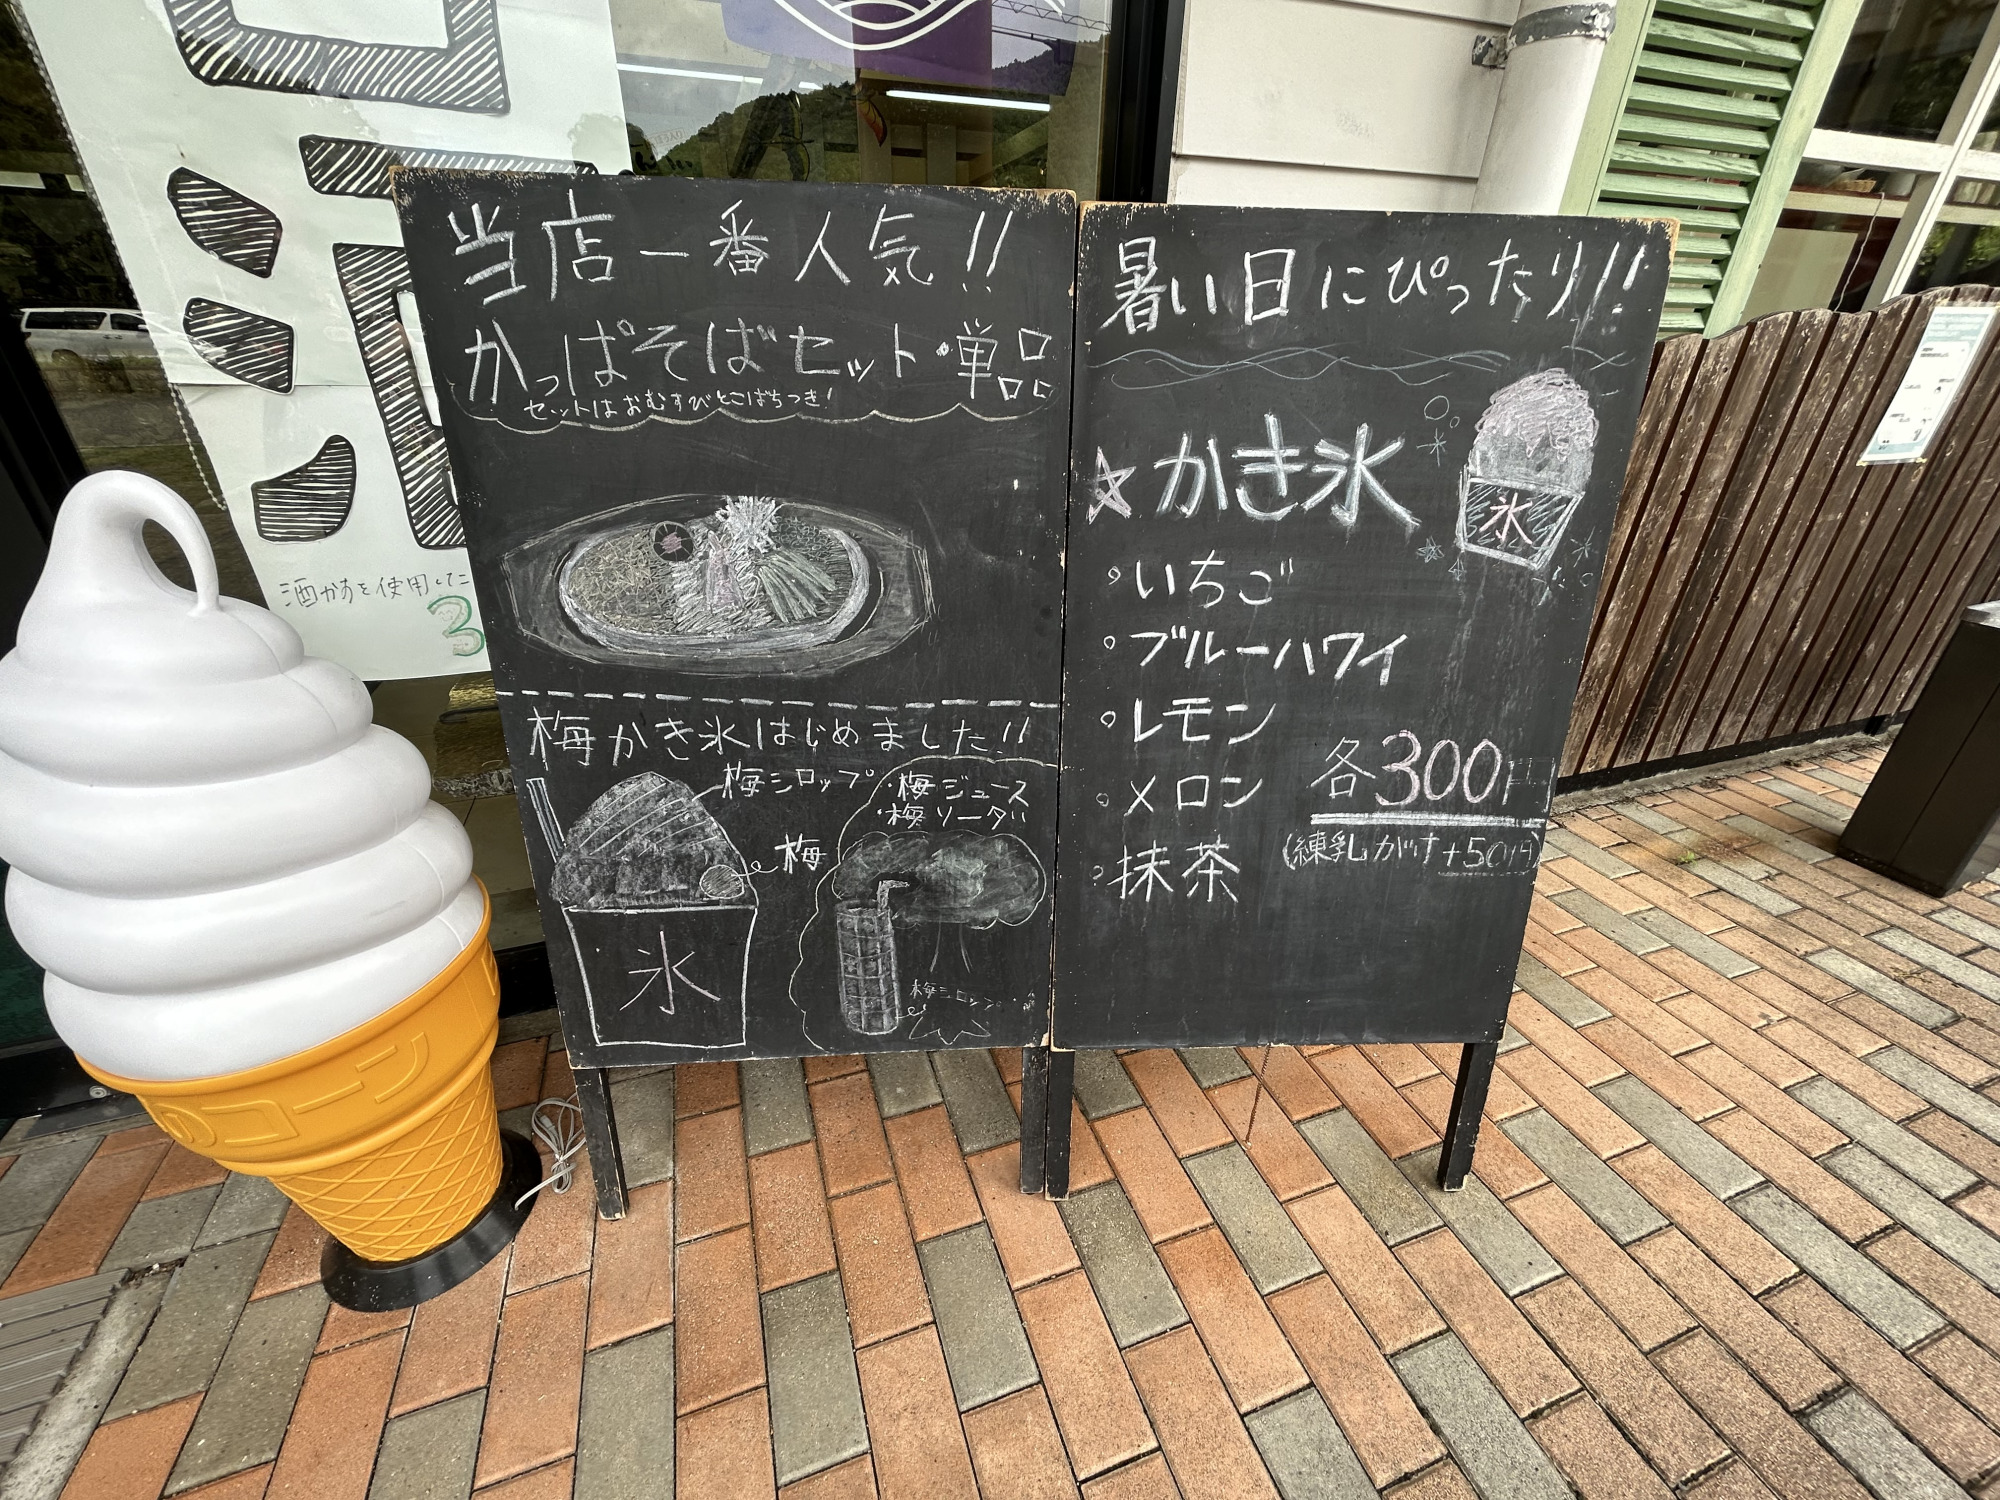 酒かすを使用した
3
当店一番人気!!
かっぱそばセット・単品
セットはおむすびとこばちつき!
梅かき氷はじめました!!
梅シロップ
梅
氷
・梅ジュース
・梅ソーダ
梅シロップ
暑い日にぴったり!!
☆かき氷
氷
・いちご
・ブルーハワイ
・レモン
・メロン
・抹茶
各300円
(練乳がけ+50円)
のコーン